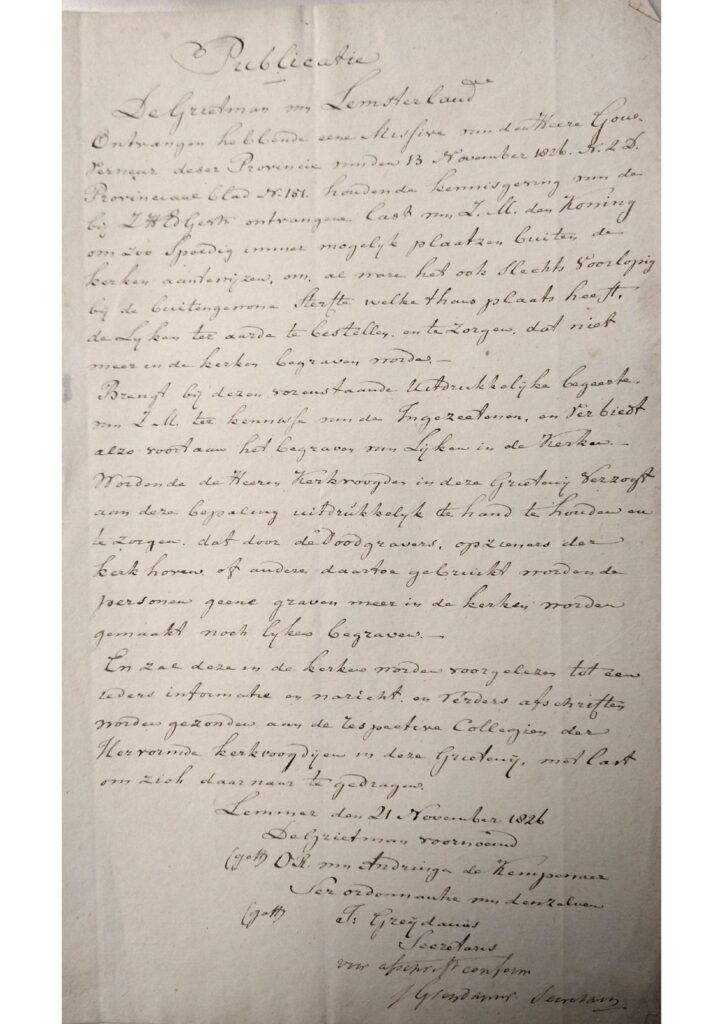 Publicatie
De Grietman van Lemsterland
Ontvangen hebbende eene Missive van den Heere Gou-
verneur dezer Provincie van den 13 November 1826. N. 2 D.
Provinciaal blad N. 151. houdende kennisgeving van de
bij Z H Ed Gestr ontvangene last van Z. M. den Koning
om zoo spoedig immer mogelijk plaatzen buiten de
kerken aantewijzen, om, al ware het ook slechts voorlopig
bij de buitengewone sterfte welke thans plaats heeft,
de Lijken ter aarde te bestellen, en te zorgen, dat niet
meer in de kerken begraven worde. —
Brengt bij dezen vorenstaande uitdrukkelijke begeerte
van Z. M. ter kennisse van de Ingezeetenen, en verbiedt
alzo voortaan het begraven van Lijken in de Kerken. —
Wordende de Heeren Kerkvoogden in deze Grietenij verzogt
aan deze bepaling uitdrukkelijk de hand te houden en
te zorgen, dat door de Doodgravers, opzieners der
kerkhoven, of andere daartoe gebruikt wordende
personen geene graven meer in de kerken worden
gemaakt noch lijken begraven. —
En zal deze in de kerken worden voorgelezen tot een
ieders informatie en naricht, en verders afschriften
worden gezonden aan de respective Collegien der
Hervormde kerkvoogdijen in deze Grietenij, met last
om zich daarnaar te gedragen.
Lemmer den 21 November 1826
De Grietman voornoemd
(gett) van Andringa de Kempenaer
Ter ordonnantie van denzelven
(gett) Greijdanus
Secretaris
voor afschrift conform
Greydanus Secretaris